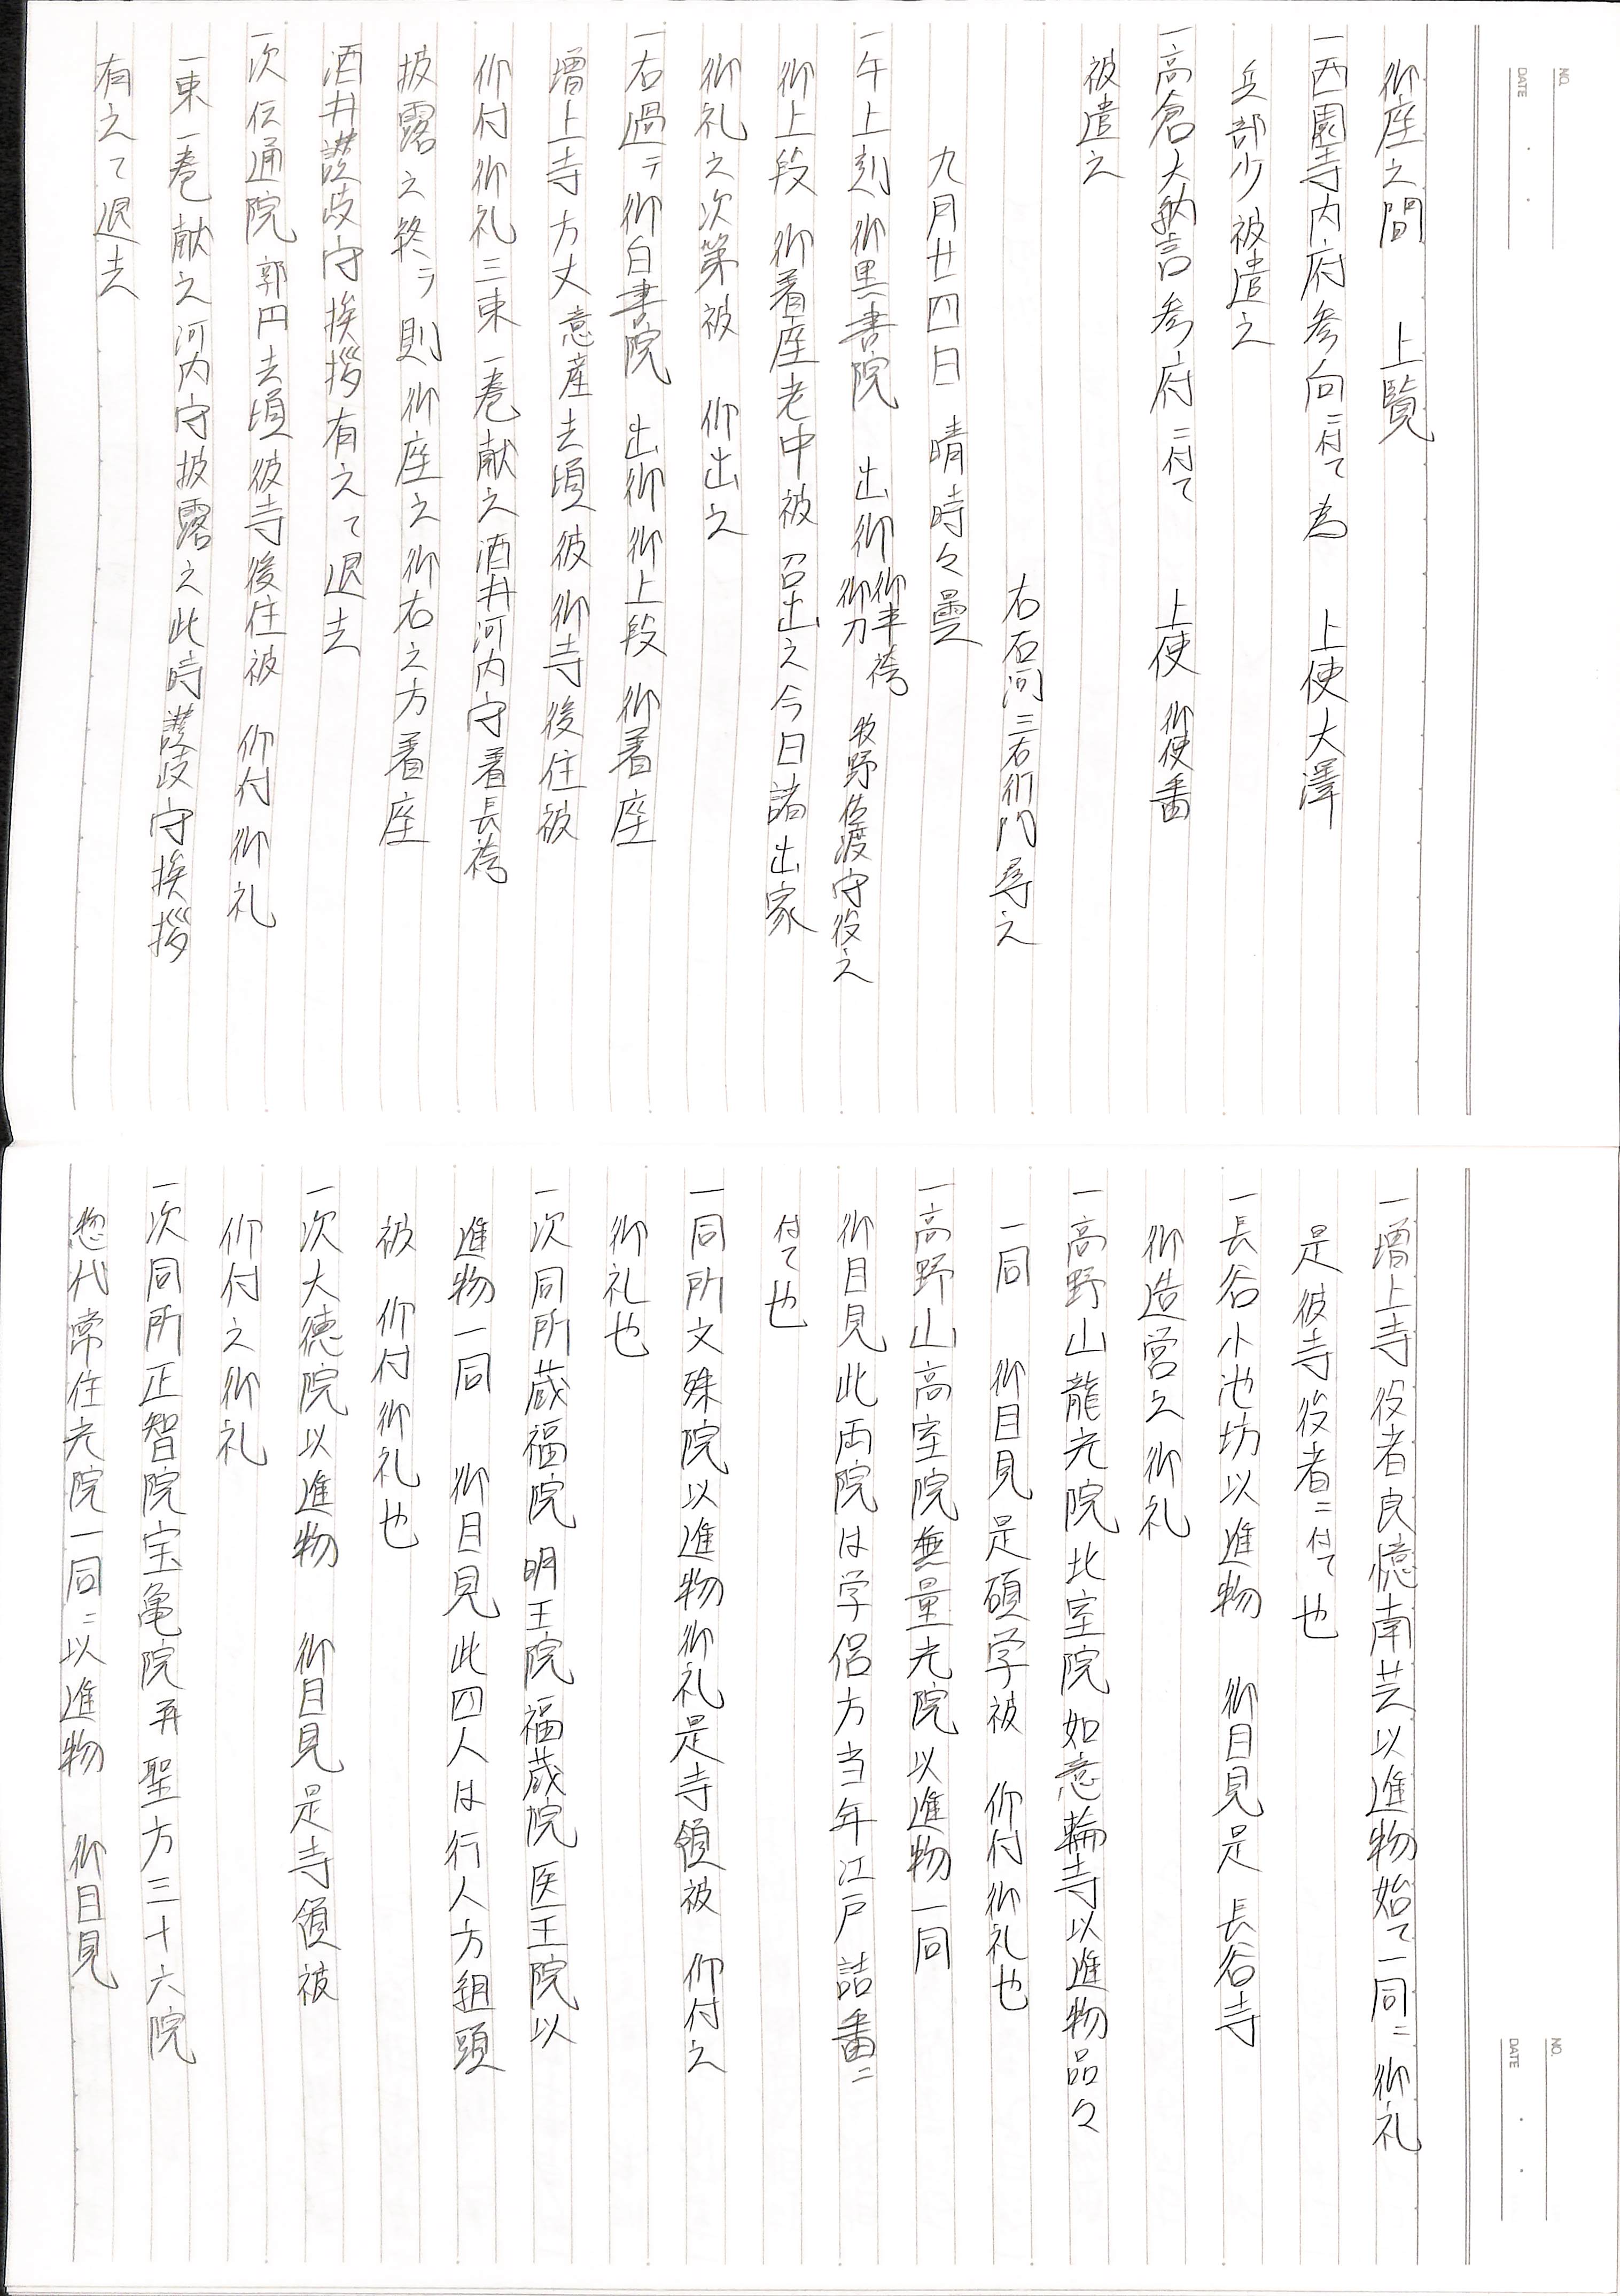 御座之間　上覧
一西園寺内府参向ニ付て為　上使大澤
兵部少被遣之
一高倉大納言参府ニ付て　上使 御使番
被遣之
右石河三右衛門尋之
九月廿四日　晴時々曇
一午上刻御黒書院　出御 御半袴 御刀 牧野佐渡守役之
御上段　御着座老中被　召出之今日諸出家
御礼之次第被　仰出之
一右過テ御白書院　出御御上段　御着座
増上寺方丈意産去頃彼御寺後住被
仰付御礼三束一巻献之酒井河内守着長袴
披露之終テ則御座之御右之方着座
酒井讃岐守挨拶有之て退去
一次伝通院郭円去頃彼寺後住被　仰付御礼
一束一巻献之河内守披露之此時讃岐守挨拶
有之て退去
NO.
DATE
一増上寺役者良憶南芸以進物始て一同ニ御礼
是彼寺役者ニ付て也
一長谷小池坊以進物　御目見是長谷寺
御造営之御礼
一高野山龍光院北室院如意輪寺以進物品々
一同　御目見是碩学被　仰付御礼也
一高野山高室院無量光院以進物一同
御目見此両院は学侶方当年江戸詰番ニ
付て也
一同所文殊院以進物御礼是寺領被　仰付之
御礼也
一次同所蔵福院明王院福蔵院医王院以
進物一同　御目見此四人は行人方組頭
被　仰付御礼也
一次大徳院以進物　御目見是寺領被
仰付之御礼
一次同所正智院宝亀院再聖方三十六院
惣代常住光院一同ニ以進物　御目見
NO.
DATE